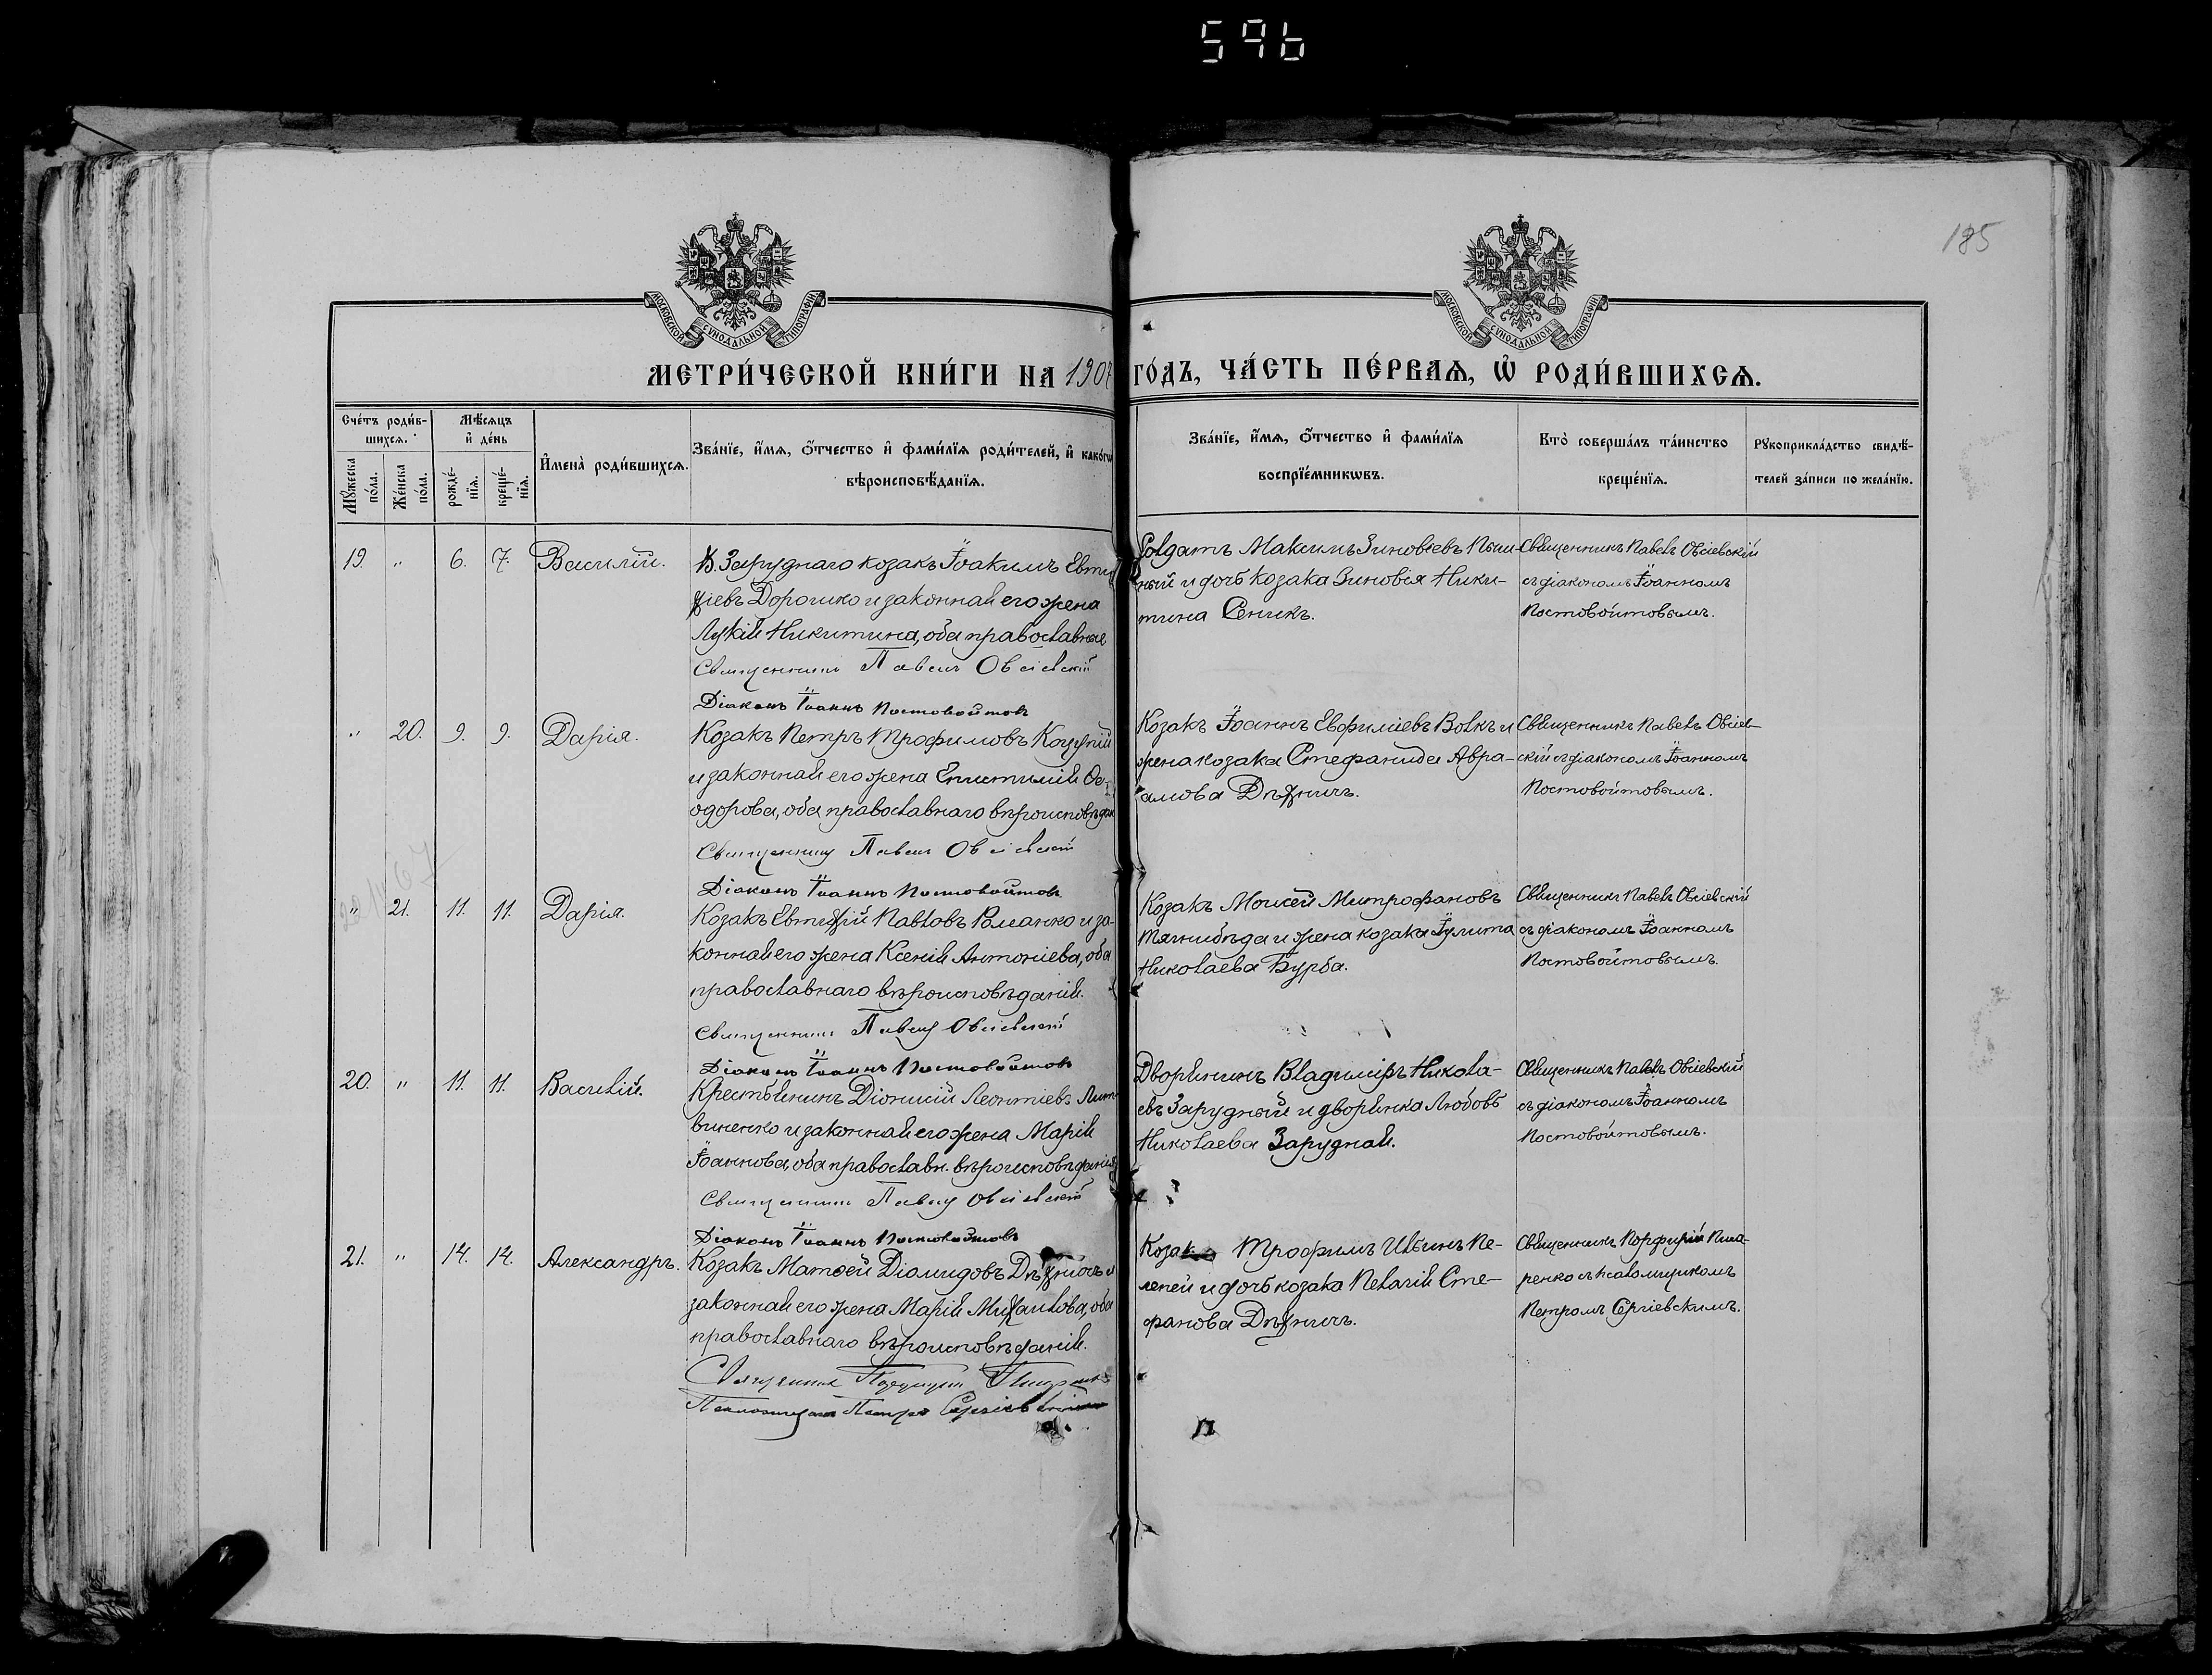 596
185
МОСКОВСКОЙ СУНОДАЛЬНОЙ ТИПОГРАФІИ
МОСКОВСКОЙ СУНОДАЛЬНОЙ ТИПОГРАФІИ
МЕТРИ́ЧЕСКОЙ КНИ́ГИ НА 1907 ГО́ДЪ, ЧА́СТЬ ПЕ́РВАѦ, Ѡ҆ РОДИ́ВШИХСѦ.
Сче́тъ роди́в-
шихсѧ.
Мꙋ́жеска по́ла.
Же́нска по́ла.
Мѣ́сѧцъ
и҆ де́нь
рожде́-
нїѧ.
креще́-
нїѧ.
И҆мена̀ роди́вшихсѧ.
Зва́нїе, и҆́мѧ, ѻ҆́тчество и҆ фами́лїѧ роди́телей, и҆ како́гѡ
вѣроисповѣ́данїѧ.
Зва́нїе, и҆́мѧ, ѻ҆́тчество и҆ фами́лїѧ
воспрїе́мникѡвъ.
Кто̀ соверша́лъ та́инство
креще́нїѧ.
Рꙋкоприкла́дство свидѣ́-
телей за́писи по жела́нїю.
19. " 6. 7. Василій.
В. Заруднаго козакъ Іоакимъ Евти
хіевъ Дорошко и законная его жена
Лукія Никитина, оба православные
Священникъ Павелъ Овсіевскій
Діаконъ Іоаннъ Постовойтовъ
Солдатъ Максимъ Зиновьевъ
ный и дочь козака Зиновія Ники-
тина Сеникъ.
Священникъ Павелъ Овсіевскій
съ діакономъ Іоанномъ
Постовойтовымъ.
" 20. 9. 9. Дарія.
Козакъ Петръ Трофимовъ Коцупій
и законная его жена Епистимія Ѳе-
одорова, оба православнаго вѣроисповѣдан
Священникъ Павелъ Овсіевскій
Діаконъ Іоаннъ Постовойтовъ
Козакъ Іоаннъ Евфиміевъ Волкъ и
жена козака Стефанида Авра-
амова Дѣхничъ.
Священникъ Павелъ Овсіев-
скій съ діакономъ Іоанномъ
Постовойтовымъ.
" 21. 11. 11. Дарія.
Козакъ Евтихій Павловъ Романко и за-
конная его жена Ксенія Антоніева, оба
православнаго вѣроисповѣданія.
Священникъ Павелъ Овсіевскій
Діаконъ Іоаннъ Постовойтовъ
Козакъ Моисей Митрофановъ
Тягнибѣда и жена козака Іулита
Николаева Бурба.
Священникъ Павелъ Овсіевскій
съ діакономъ Іоанномъ
Постовойтовымъ.
20. " 11. 11. Василій.
Крестьянинъ Діонисій Леонтіевъ Лит-
виненко и законная его жена Марія
Іоаннова, оба православн. вѣроисповѣданія
Священникъ Павелъ Овсіевскій
Діаконъ Іоаннъ Постовойтовъ
Дворянинъ Владиміръ Никола-
евъ Зарудный и дворянка Любовь
Николаева Зарудная.
Священникъ Павелъ Овсіевскій
съ діакономъ Іоанномъ
Постовойтовымъ.
21. " 14. 14. Александръ.
Козакъ Матѳей Діомидовъ Дѣхничъ и
законная его жена Марія Михаилова, оба
православнаго вѣроисповѣданія.
Священникъ Порфирій
Псаломщикъ Петръ Сергіевскій
Козакъ Трофимъ Ильинъ Пе-
лепей и дочь козака Пелагія Сте-
фанова Дѣхничъ.
Священникъ Порфирій
ренко съ псаломщикомъ
Петромъ Сергіевскимъ.